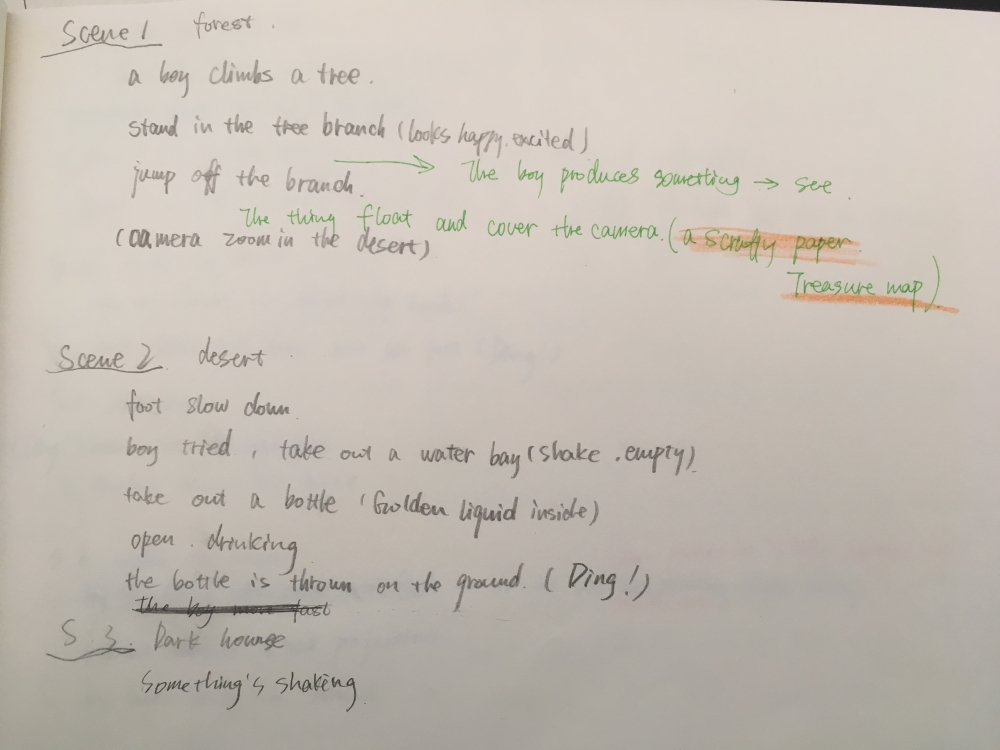 Scene 1 forest.
a boy climbs a tree.
stand in the tree branch (looks happy. excited)
jump off the branch. → The boy produces something → see.
The thing float and cover the camera. (a scruffy paper.
(camera zoom in the desert)
Treasure map)
Scene 2 desert
foot slow down.
boy tried, take out a water bay (shake. empty)
take out a bottle (Golden liquid inside)
open. drinking
the bottle is thrown on the ground. (Ding!)
the boy move fast
S.3. Dark hounse
Something's shaking